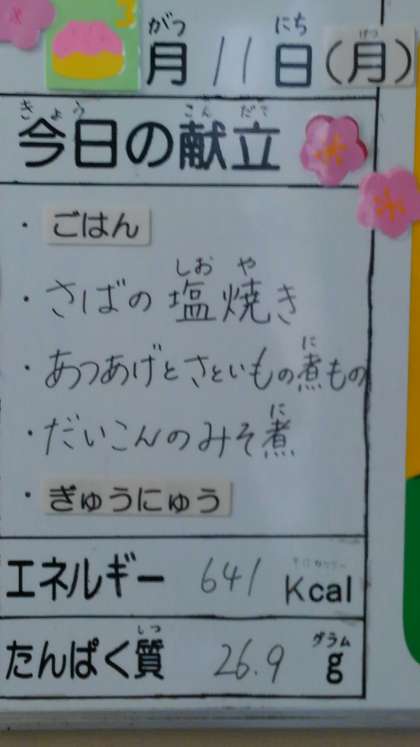 3
がつ にち げつ
月 11 日(月)
きょう こん だて
今日の献立
・ごはん
しお や
・さばの塩焼き
に
・あつあげとさといもの煮もの
に
・だいこんのみそ煮
・ぎゅうにゅう
エネルギー 641 Kcal
しつ グラム
たんぱく質 26.9 g